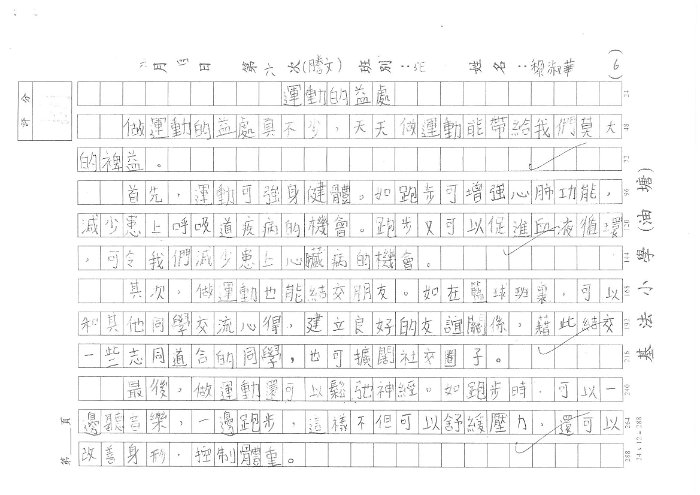 二月 日 第六次(謄文) 班別：5E 姓名：黎淑華 (6)
評分
運動的益處
做運動的益處真不少，天天做運動能帶給我們莫大
的裨益。
首先，運動可強身健體。如跑步可增強心肺功能，
減少患上呼吸道疾病的機會。跑步又可以促進血液循環
，可令我們減少患上心臟病的機會。
其次，做運動也能結交朋友。如在籃球班裏，可以
和其他同學交流心得，建立良好的友誼關係，藉此結交
一些志同道合的同學，也可擴闊社交圈子。
最後，做運動還可以鬆弛神經。如跑步時，可以一
邊聽音樂，一邊跑步，這樣不但可以舒緩壓力，還可以
改善身形，控制體重。
第 頁
24
48
72
96
120
144
168
192
216
240
264
288
24 x 12 = 288
基法小學(油塘)